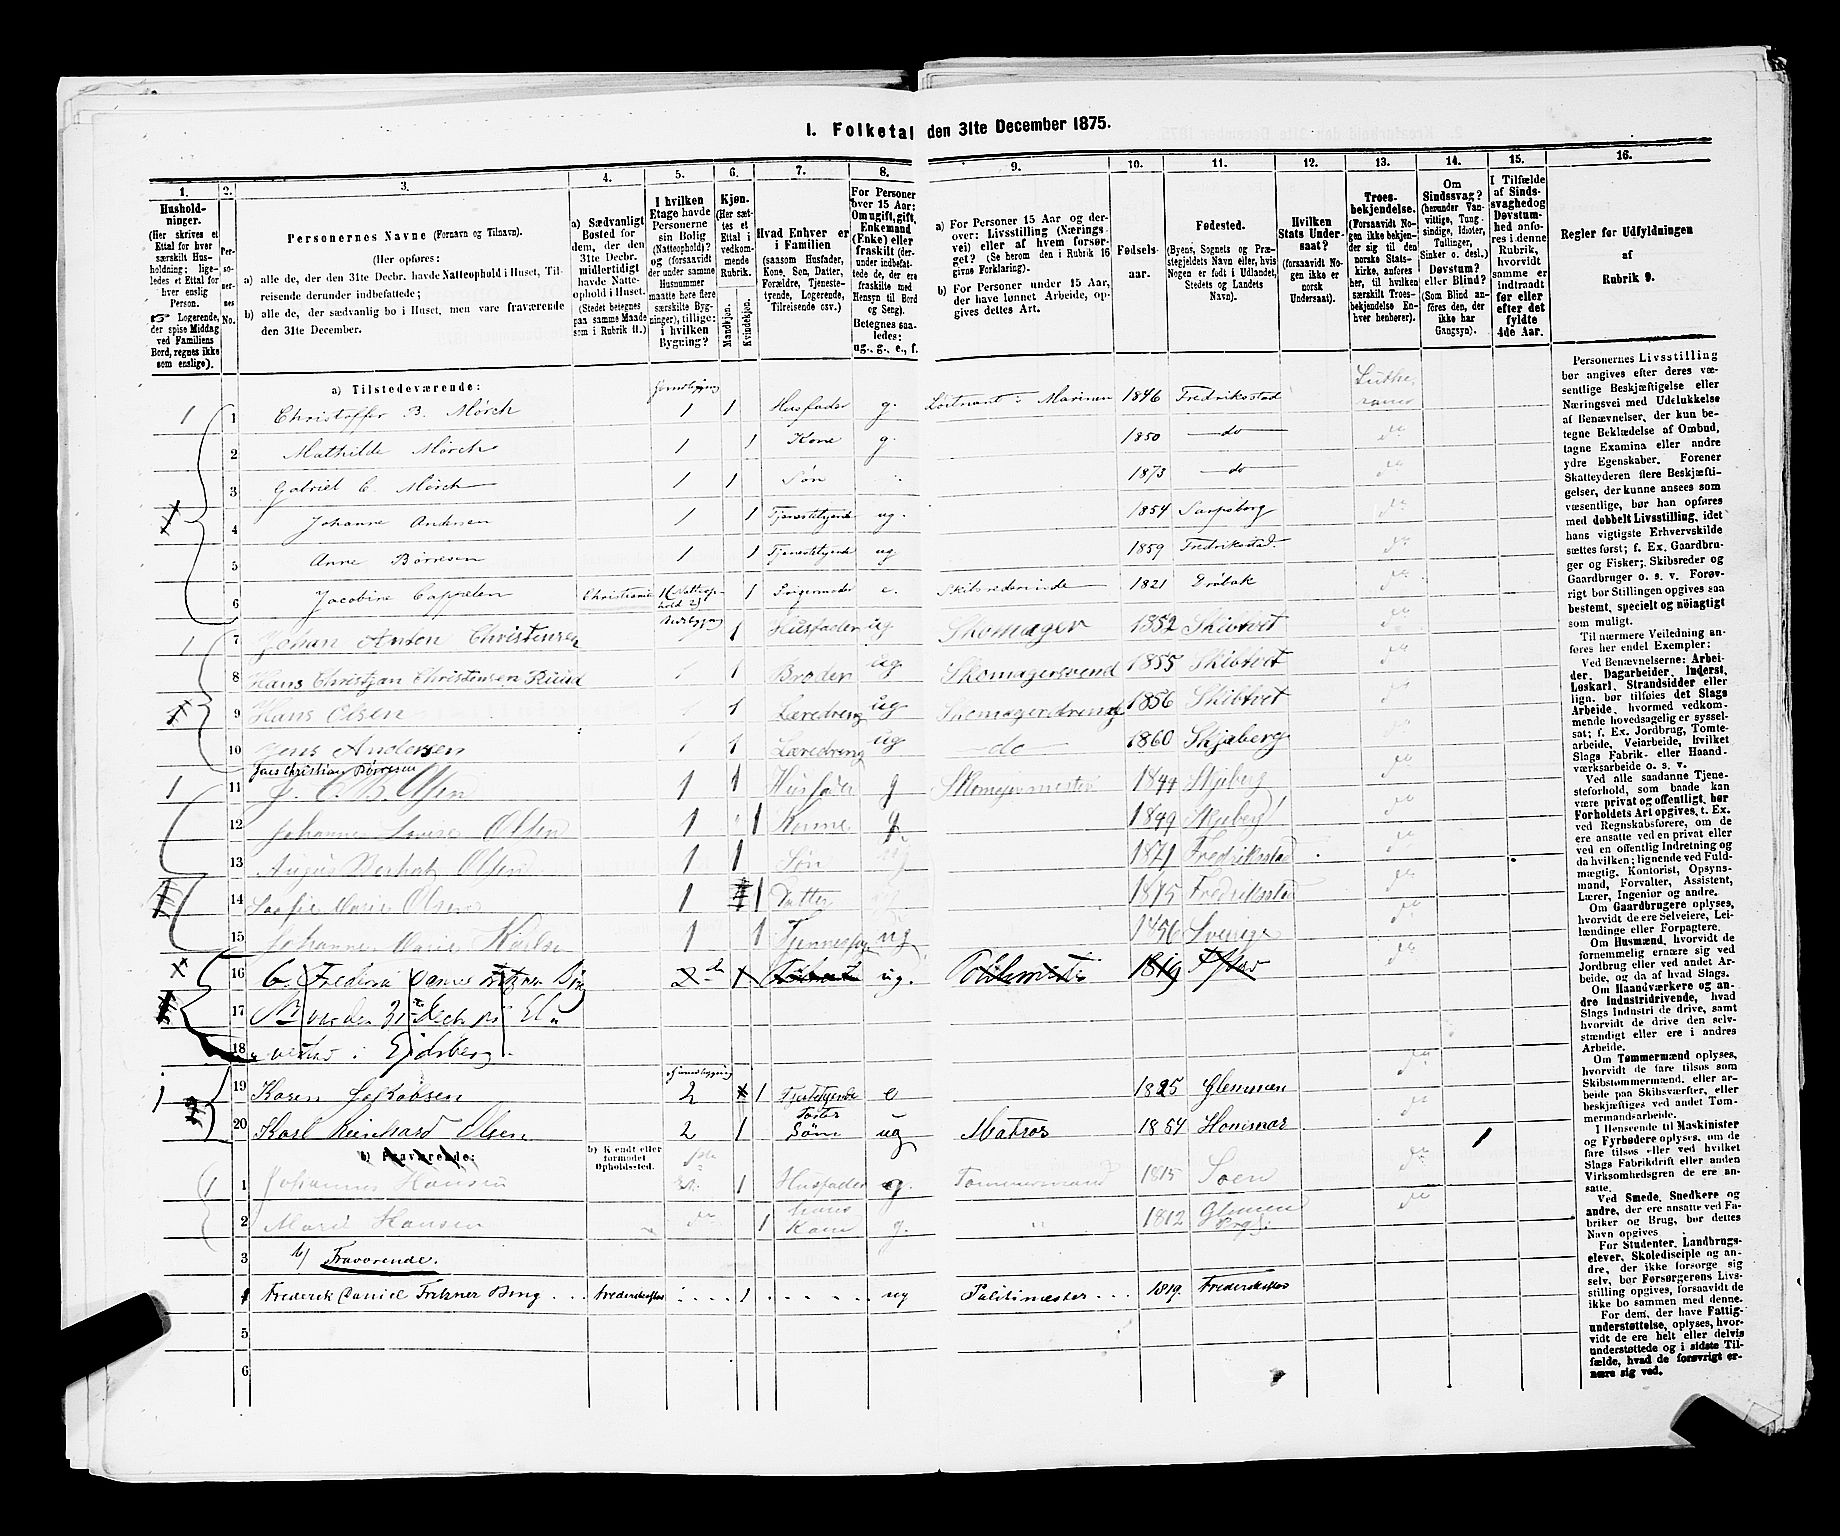 I. Folketal den 31te December 1875.
1. 2. 3. 4. 5. 6. 7. 8. 9. 10. 11. 12. 13. 14. 15. 16.
Husholdninger.
(Her skrives et
Ettal for hver
særskilt Husholdning; ligeledes
et Ettal for
hver enslig
Person.
Logerende,
der spise Middag
ved Familiens
Bord, regnes ikke
som enslige).
Personernes No.
Personernes Navne (Fornavn og Tilnavn).
(Her opføres:
a) alle de, der den 31te Decbr. havde Natteophold i Huset, Tilreisende
derunder indbefattede;
b) alle de, der sædvanlig bo i Huset, men vare fraværende
den 31te December.
a) Sædvanligt
Bosted for
dem, der den
31te Decbr.
midlertidigt
havde Natteophold
i Huset.
(Stedet betegnes
paa samme Maade
som i Rubrik 11.)
I hvilken
Etage havde
Personerne
sin Bolig
(Natteophold)?
og (forsaavidt
der under samme
Husnummer
maatte høre flere
særskilte Bygninger),
tillige:
i hvilken
Bygning?
Kjøn.
(Her sættes
et
Ettal i
vedkommende
Rubrik.
Mandkjøn.
Kvindekjøn.
Hvad Enhver er
i Familien
(saasom Husfader,
Kone, Søn, Datter,
Forældre, Tjenestetyende,
Logerende,
Tilreisende osv.)
For Personer
over 15 Aar:
Om ugift, gift,
Enkemand
(Enke) eller
fraskilt (derunder
indbefattede
de, der ere
fraskilte med
Hensyn til Bord
og Seng).
Betegnes saaledes:
ug., g., e., f.
a) For Personer 15 Aar og derover:
Livsstilling (Næringsvei)
eller af hvem forsørget?
(Se herom den i Rubrik 16
givne Forklaring).
b) For Personer under 15 Aar,
der have lønnet Arbeide, opgives
dettes Art.
Fødselsaar.
Fødested.
(Byens, Sognets og Præstegjeldets
Navn eller, hvis
Nogen er født i Udlandet,
Stedets og Landets
Navn).
Hvilken
Stats Undersaat?
(forsaavidt Nogen
ikke er
norsk
Undersaat).
Troesbekjendelse.
(Forsaavidt Nogen
ikke bekjender
sig til den
norske Statskirke,
anføres
her, til hvilken
særskilt Troesbekjendelse
Enhver
henhører).
Om
Sindssvag?
(herunder Vanvittige,
Tungsindige,
Idioter,
Tullinger,
Sinker o. desl.)
Døvstum?
eller Blind?
(Som Blind anføres
den, der
ikke har
Gangsyn).
I Tilfælde
af Sindssvaghed
og
Døvstumhed
anføres
i denne
Rubrik,
hvorvidt
samme er
indtraadt
før eller
efter det
fyldte
4de Aar.
Regler for Udfyldningen
af
Rubrik 9.
a) Tilstedeværende:
1 1 Christoffer B. Mörch 1 1 Husfader g. Loitnant i Marinen 1846 Fredriksstad Lutheraner
2 Mathilde Mörch 1 1 Kone g. 1850 do do
3 Gabriel C. Mörch 1 1 Søn 1873 do do
4 Johanne Andersen 1 1 Tjenestetyende ug. 1854 Sarpsborg do
5 Anne Börresen 1 1 Tjenestetyende ug 1859 Fredriksstad. do
6 Jacobine Cappelen Christiania 1 (Natteophold 2) 1 Svigermoder e. Skibsrederinde 1821 Dröbak do
1 7 Johan Anton Christensen 1 Husfader ug Skomager 1852 Skibtvet do
8 Hans Christjan Christensen Ruud 1 1 Broder ug Skomagersvend 1855 Skibtvet do
9 Hans Olsen 1 1 Læredreng ug Skomagerdreng 1856 Skibtvet do
10 Jens Andersen 1 1 Læredreng ug do 1860 Skjeberg do
Jens Christian Börresen
1 11 J. C. B. Olsen 1 1 Husfader g Skomagermester 1844 Skjeberg do
12 Johanne Lovise Olsen 1 1 Konne g 1849 Skjeberg do
13 August Olsen 1 1 Søn ug 1871 Fredriksstad do
14 Marie Olsen 1 1 Datter 1875 Fredriksstad do
15 Johanne Marie Karlsen 1 1 ug 1856 Sverige do
16 C. Frederik ug. Politimester 1819
17 den 31 Dec
18 i Eidsberg.
19 Karen Jakobsen 2 1 Tjenestetyende e 1825 Glemmen do
20 Karl Reinhard Olsen 2 1 Søn ug Matros 1854 do 1
b) Fraværende:
b) Kjendt eller
formodet
Opholdssted.
1 Johannes Hansen 1 Husfader g. Tømmermand 1815 Soen do
2 Marie Hansen do 1 hans Kone g. " 1812 Glemmen Prgj: do
3 b) Fraværende.
4 Frederik Daniel Fritzner Bing 1 ug Politimester 1819. Frederikshald
5
6
Personernes Livsstilling
bør angives efter deres væsentlige
Beskjæftigelse eller
Næringsvei med Udelukkelse
af Benævnelser, der kun betegne
Beklædelse af Ombud,
tagne Examina eller andre
ydre Egenskaber. Forener
Skatteyderen flere Beskjæftigelser,
der kunne ansees som
væsentlige, bør han opføres
med dobbelt Livsstilling, idet
hans vigtigste Erhvervskilde
sættes først; f. Ex. Gaardbruger
og Fisker; Skibsreder og
Gaardbruger o. s. v. Forøvrigt
bør Stillingen opgives saa
bestemt, specielt og nøiagtigt
som muligt.
Til nærmere Veiledning anføres
her endel Exempler:
Ved Benævnelserne: Arbeider,
Dagarbeider, Inderst,
Løskarl, Strandsidder eller
lign. bør tilføies det Slags
Arbeide, hvormed vedkommende
hovedsagelig er sysselsat;
f. Ex. Jordbrug, Tomtearbeide,
Veiarbeide, hvilket
Slags Fabrik- eller Haandværksarbeide
o. s. v.
Ved alle saadanne Tjenesteforhold,
som baade kan
være privat og offentligt, bør
Forholdets Art opgives, t. Ex.
ved Regnskabsførere, om de
ere ansatte ved en privat eller
ved en offentlig Indretning og
da hvilken; lignende ved Fuldmægtig,
Kontorist, Opsynsmand,
Forvalter, Assistent,
Lærer, Ingeniør og andre.
Om Gaardbrugere oplyses,
hvorvidt de ere Selveiere, Leilændinge
eller Forpagtere.
Om Husmænd, hvorvidt de
fornemmelig ernære sig ved
Jordbrug eller ved andet Arbeide,
og da af hvad Slags.
Om Haandværkere og andre
Industridrivende, hvad
Slags Industri de drive, samt
hvorvidt de drive den selvstændigt
eller ere i andres
Arbeide.
Om Tømmermænd oplyses,
hvorvidt de fare tilsøs som
Skibstømmermænd, eller arbeide
paa Skibsværfter, eller
beskjæftiges ved andet Tømmermandsarbeide.
I Henseende til Maskinister
og Fyrbødere oplyses, om de
fare tilsøs eller ved hvilket
Slags Fabrikdrift eller anden
Virksomhedsgren de ere ansatte.
Ved Smede, Snedkere og
andre, der ere ansatte ved Fabriker
og Brug, bør dettes
Navn opgives.
For Studenter, Landbrugselever,
Skoledisciple og andre,
der ikke forsørge sig
selv, bør Forsørgerens Livsstilling
opgives, forsaavidt de
ikke bo sammen med denne.
For dem, der have Fattigunderstøttelse,
oplyses, hvorvidt
de ere helt eller delvis
understøttede og i sidste Tilfælde,
hvad de forøvrigt ernære
sig ved.